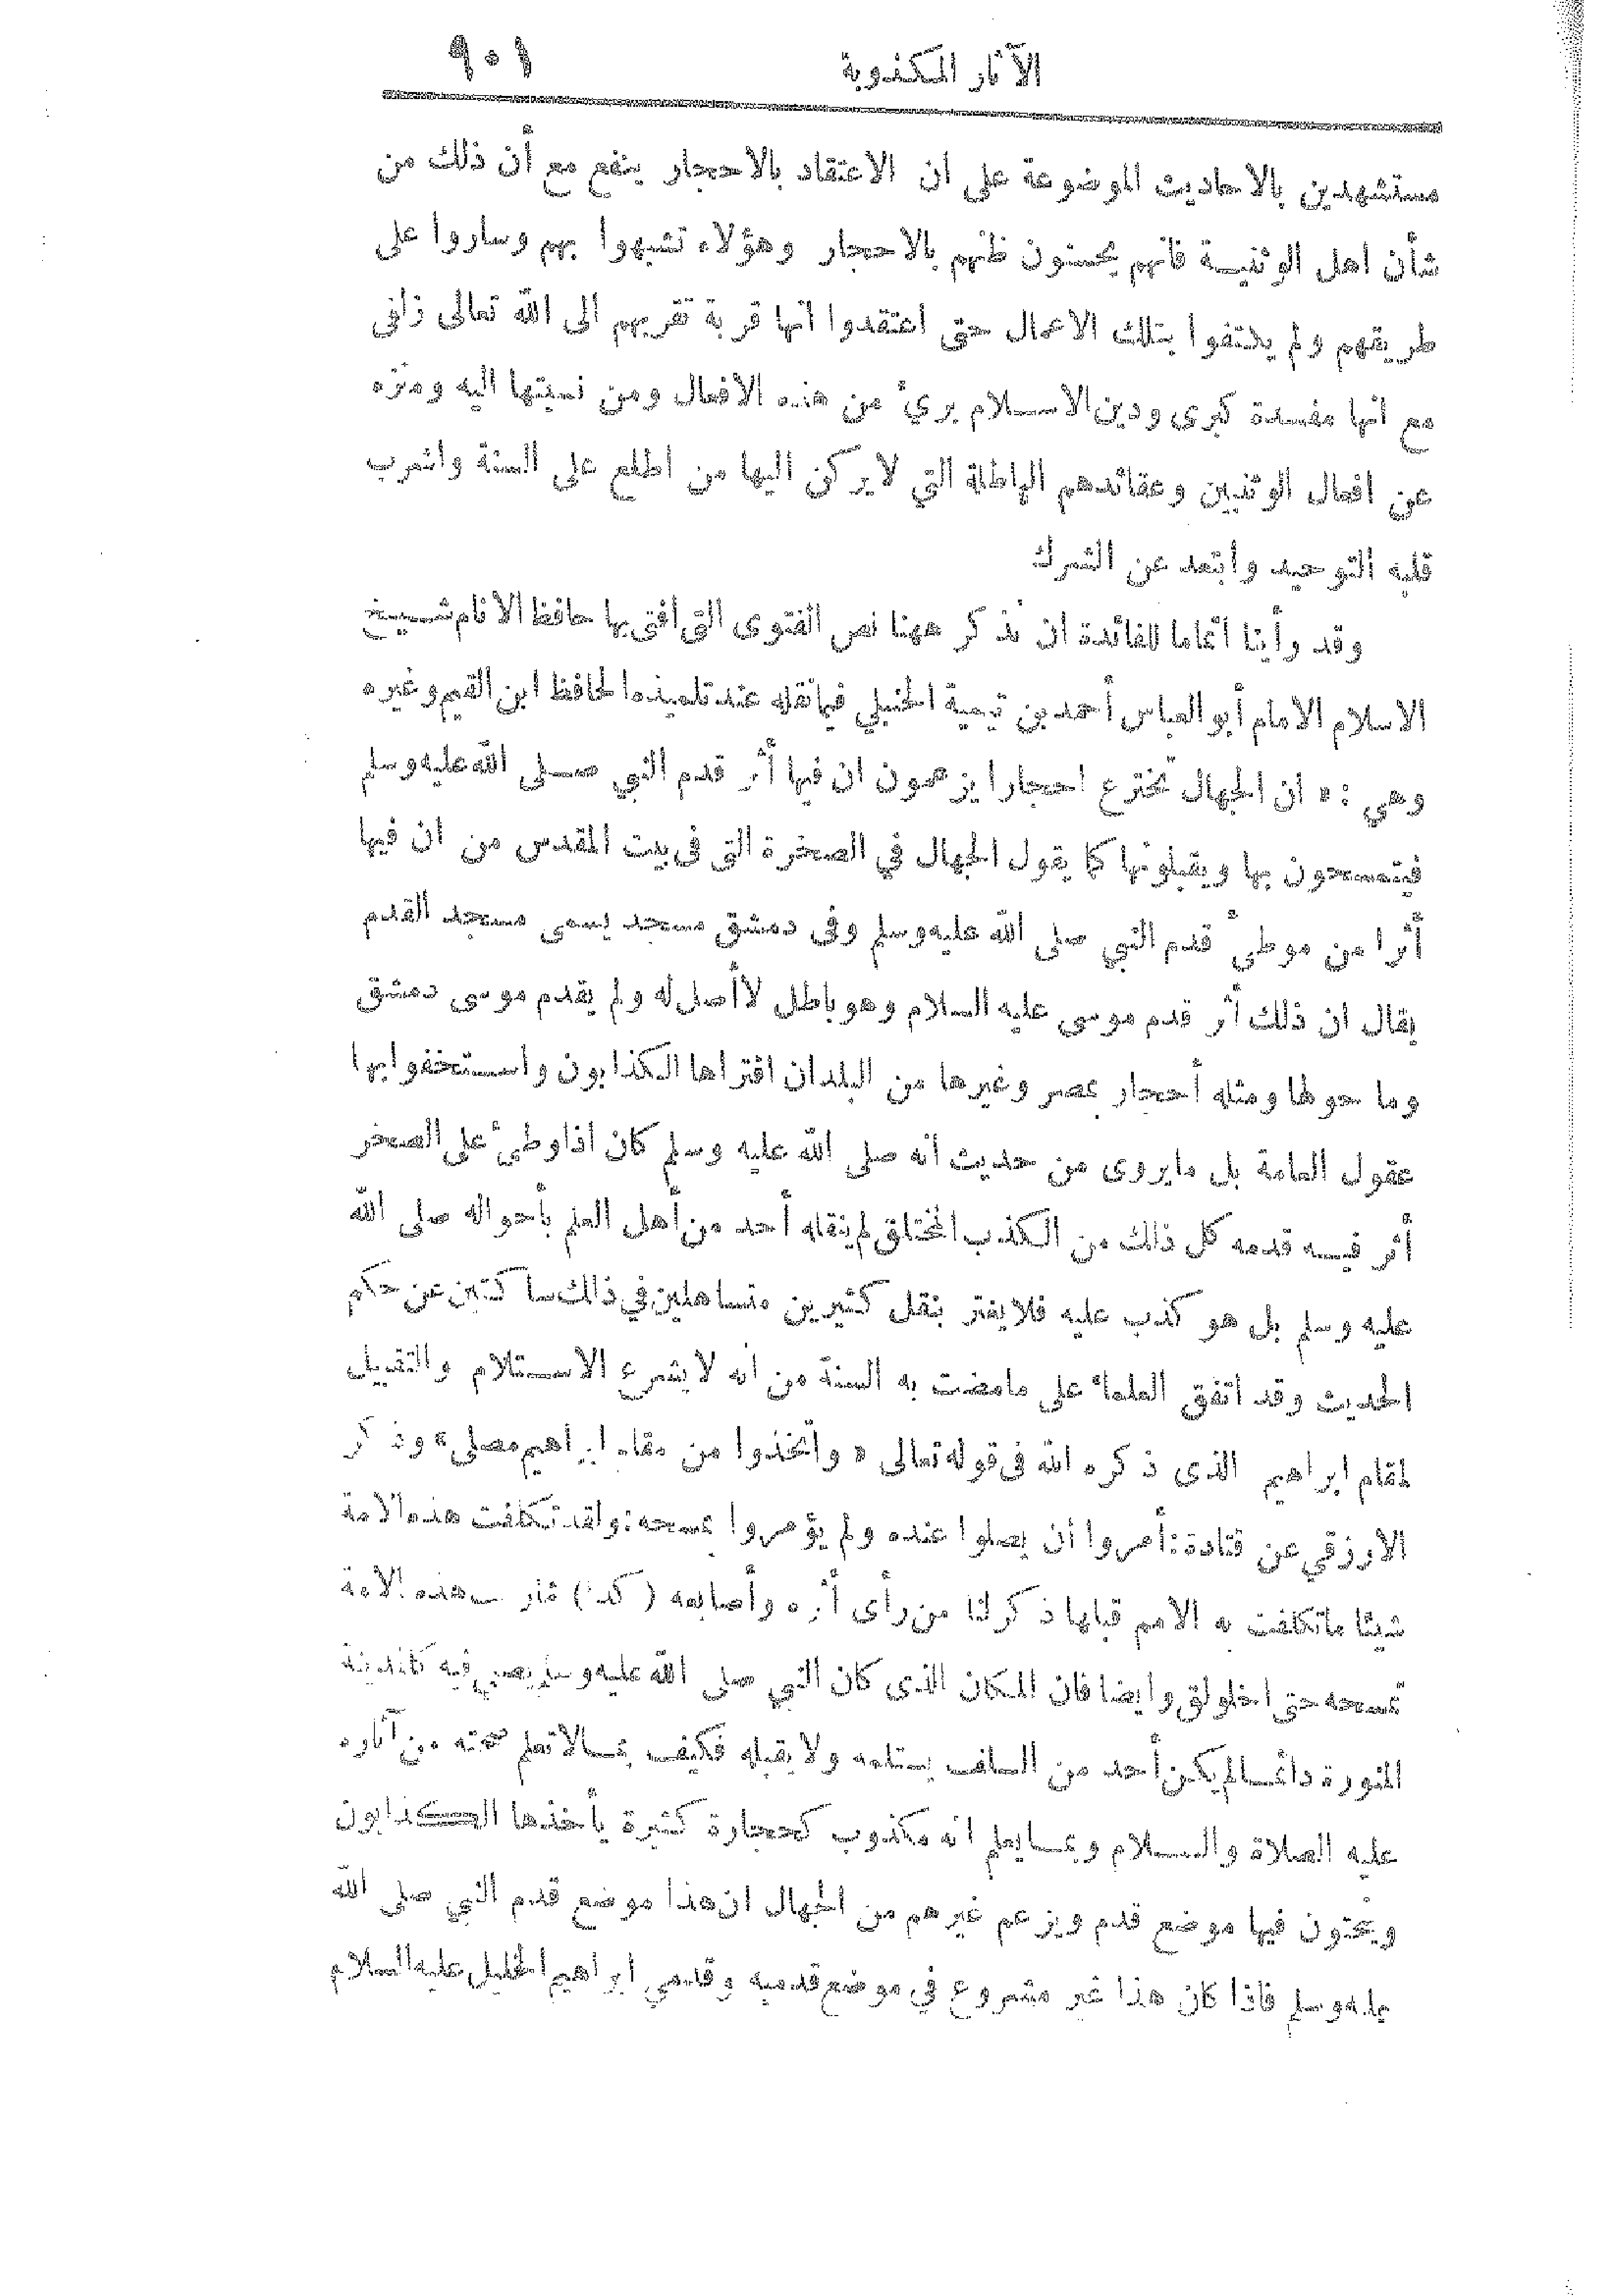 الآثار المكذوبة ٩٠١
مستشهدين بالاحاديث الموضوعة على ان الاعتقاد بالاحجار ينفع مع أن ذلك من
شأن اهل الوثنيـة فانهم يحسنون ظنهم بالاحجار وهؤلاء تشبهوا بهم وساروا على
طريقهم ولم يكتفوا بتلك الاعمال حتى اعتقدوا انها قربة تقربهم الى الله تعالى زلفى
مع انها مفسدة كبرى ودين الاسـلام بريء من هذه الافعال ومن نسبتها اليه ومنزه
عن افعال الوثنيين وعقائدهم الباطلة التي لا يركن اليها من اطلع على السنة واشرب
قلبه التوحيد وابتعد عن الشرك
وقد رأينا اتماما للفائدة ان نذكر ههنا نص الفتوى التى أفتى بها حافظ الانام شـيخ
الاسلام الامام أبو العباس أحمد بن تيمية الحنبلي فيما نقله عند تلميذه الحافظ ابن القيم وغيره
وهي : « ان الجهال تخترع احجارا يزعمون ان فيها أثر قدم النبي صـلى الله عليه وسلم
فيتمسحون بها ويقبلونها كما يقول الجهال في الصخرة التى فى بيت المقدس من ان فيها
أثرا من موطئ قدم النبي صلى الله عليه وسلم وفى دمشق مسجد يسمى مسجد القدم
يقال ان ذلك أثر قدم موسى عليه السلام وهو باطل لا أصل له ولم يقدم موسى دمشق
وما حولها ومثله أحجار بمصر وغيرها من البلدان افتراها الكذابون واسـتخفوا بها
عقول العامة بل ما يروى من حديث أنه صلى الله عليه وسلم كان اذا وطئ على الصخر
أثر فيـه قدمه كل ذلك من الكذب المختلق لم ينقله أحد من أهل العلم بأحواله صلى الله
عليه وسلم بل هو كذب عليه فلا يغتر بنقل كثيرين متساهلين في ذلك ساكتين عن حكم
الحديث وقد اتفق العلماء على مامضت به السنة من أنه لا يشرع الاسـتلام والتقبيل
لمقام ابراهيم الذى ذكره الله فى قوله تعالى « واتخذوا من مقام ابراهيم مصلى » وذكر
الازرقي عن قتادة : أمروا أن يصلوا عنده ولم يؤمروا بمسحه : ولقد تكلفت هذه الامة
شيئا ماتكلفت به الامم قبلها ذكر لنا من رأى أثره وأصابعه ( كذا ) هذه الامة
تمسحه حتى اخلولق وايضا فان المكان الذى كان النبي صلى الله عليه وسلم يصلي فيه بالمدينة
المنورة دائمـا لم يكن أحد من السلف يستلمه ولا يقبله فكيف بمـا لا تعلم صحته من آثاره
عليه الصلاة والسـلام وبمـا يعلم انه مكذوب كحجارة كثيرة يأخذها الكذابون
وينحتون فيها موضع قدم ويزعم غيرهم من الجهال ان هذا موضع قدم النبي صلى الله
عليه وسلم فاذا كان هذا غير مشروع في موضع قدميه وقدمي ابراهيم الخليل عليه السلام